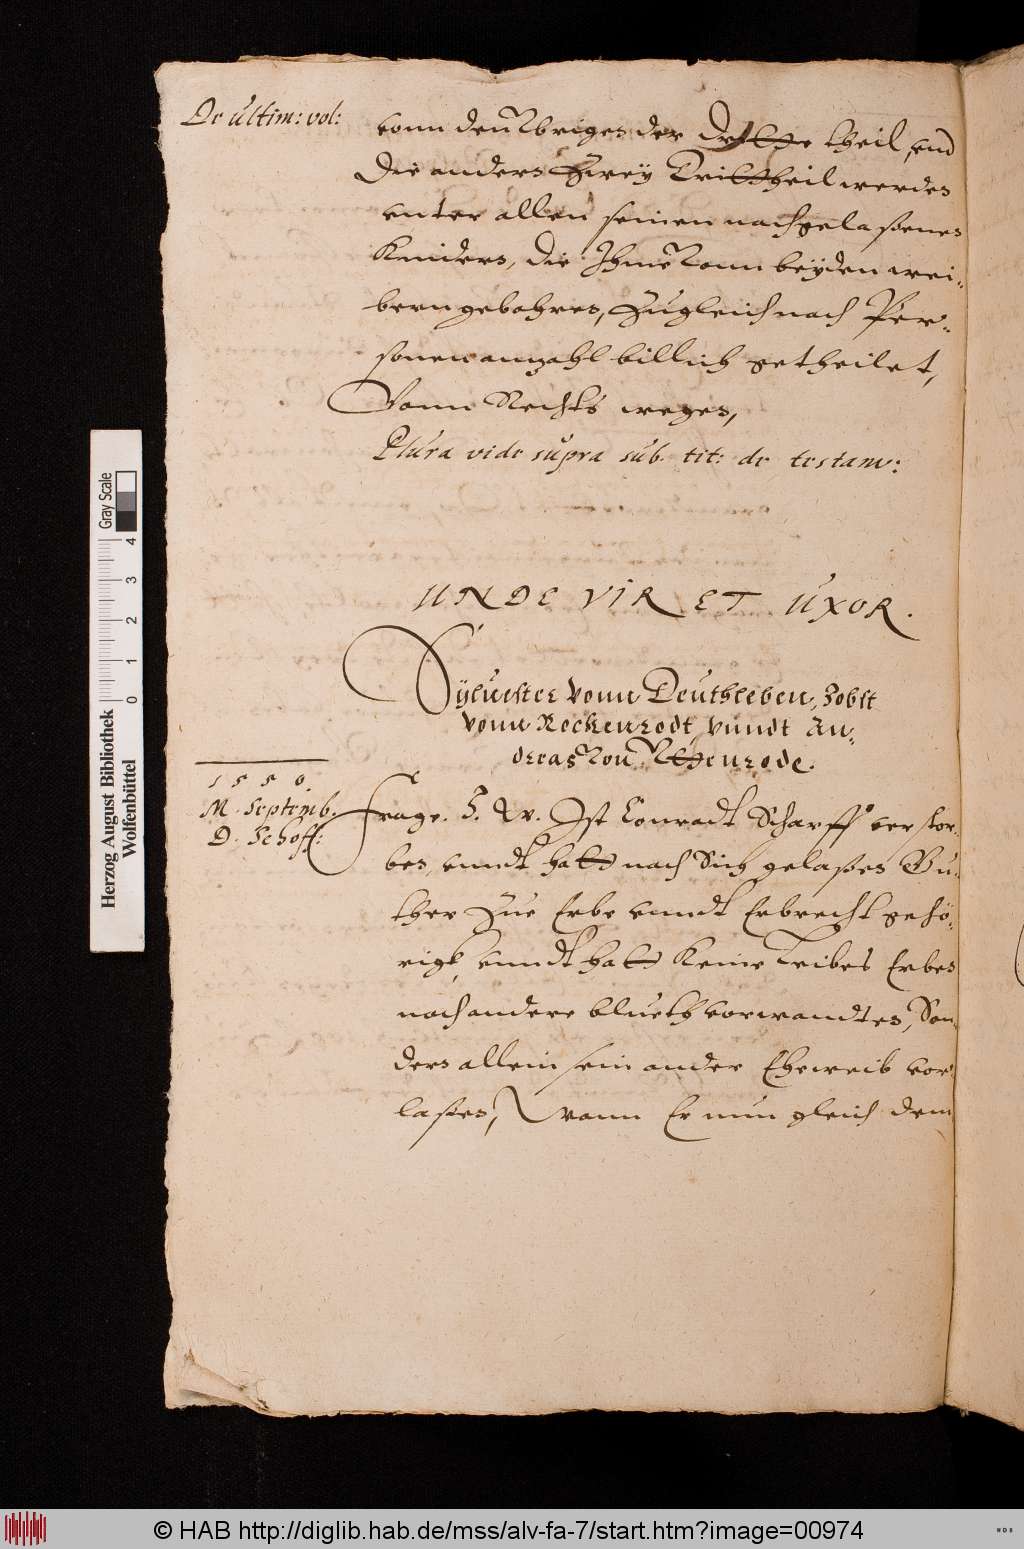 De ultim: vol:
vonn den Vbrigen der dritte theil, vnd
Die andern Zwey Drittheil werden
vnter allen seinen nachgelaßenen
Kindern, die Ihme vonn beyden wei-
bern gebohren, Zugleich nach Per-
sonen anzahl billich getheilet,
Vonn Rechts wegen,
Plura vide supra sub. tit: de testam:
UNDE VIR ET UXOR.
Syluester vonn Deuthleben, Jobst
vonn Reckenrodt, vnndt An-
dreas von Vttenrode.
1550.
M. Septemb.
D. Schoff:
Frage. J. W. Ist Conradt Scharff verstor-
ben, vnndt hatt nach Sich gelaßen Gu-
ther Zue Erbe vnndt Erbrecht gehö-
rigk, vnndt hatt Keine Leibes Erben
noch andere blueth vorwandten, Son-
dern allein sein ander Eheweib vor-
laßen, Wann Er nun gleich dem
Herzog August Bibliothek
Wolfenbüttel
0 1 2 3 4
Gray Scale
© HAB http://diglib.hab.de/mss/alv-fa-7/start.htm?image=00974